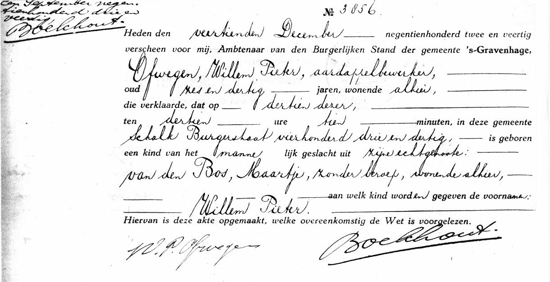 en September negen
tienhonderd drie en
veertig
Boekhout
№ 3856.
Heden den veertienden December negentienhonderd twee en veertig
verscheen voor mij, Ambtenaar van den Burgerlijken Stand der gemeente 's-Gravenhage,
Ofwegen, Willem Pieter, aardappelbewerker,
oud zes en dertig jaren, wonende alhier,
die verklaarde, dat op dertien dezer,
ten dertien ure tien minuten, in deze gemeente
Schalk Burgerstraat vierhonderd drie en dertig, is geboren
een kind van het manne lijk geslacht uit zijne echtgenoote:
van den Bos, Maartje, zonder beroep, wonende alhier,
aan welk kind worden gegeven de voorname:
Willem Pieter.
Hiervan is deze akte opgemaakt, welke overeenkomstig de Wet is voorgelezen.
W. P. Ofwegen
Boekhout.